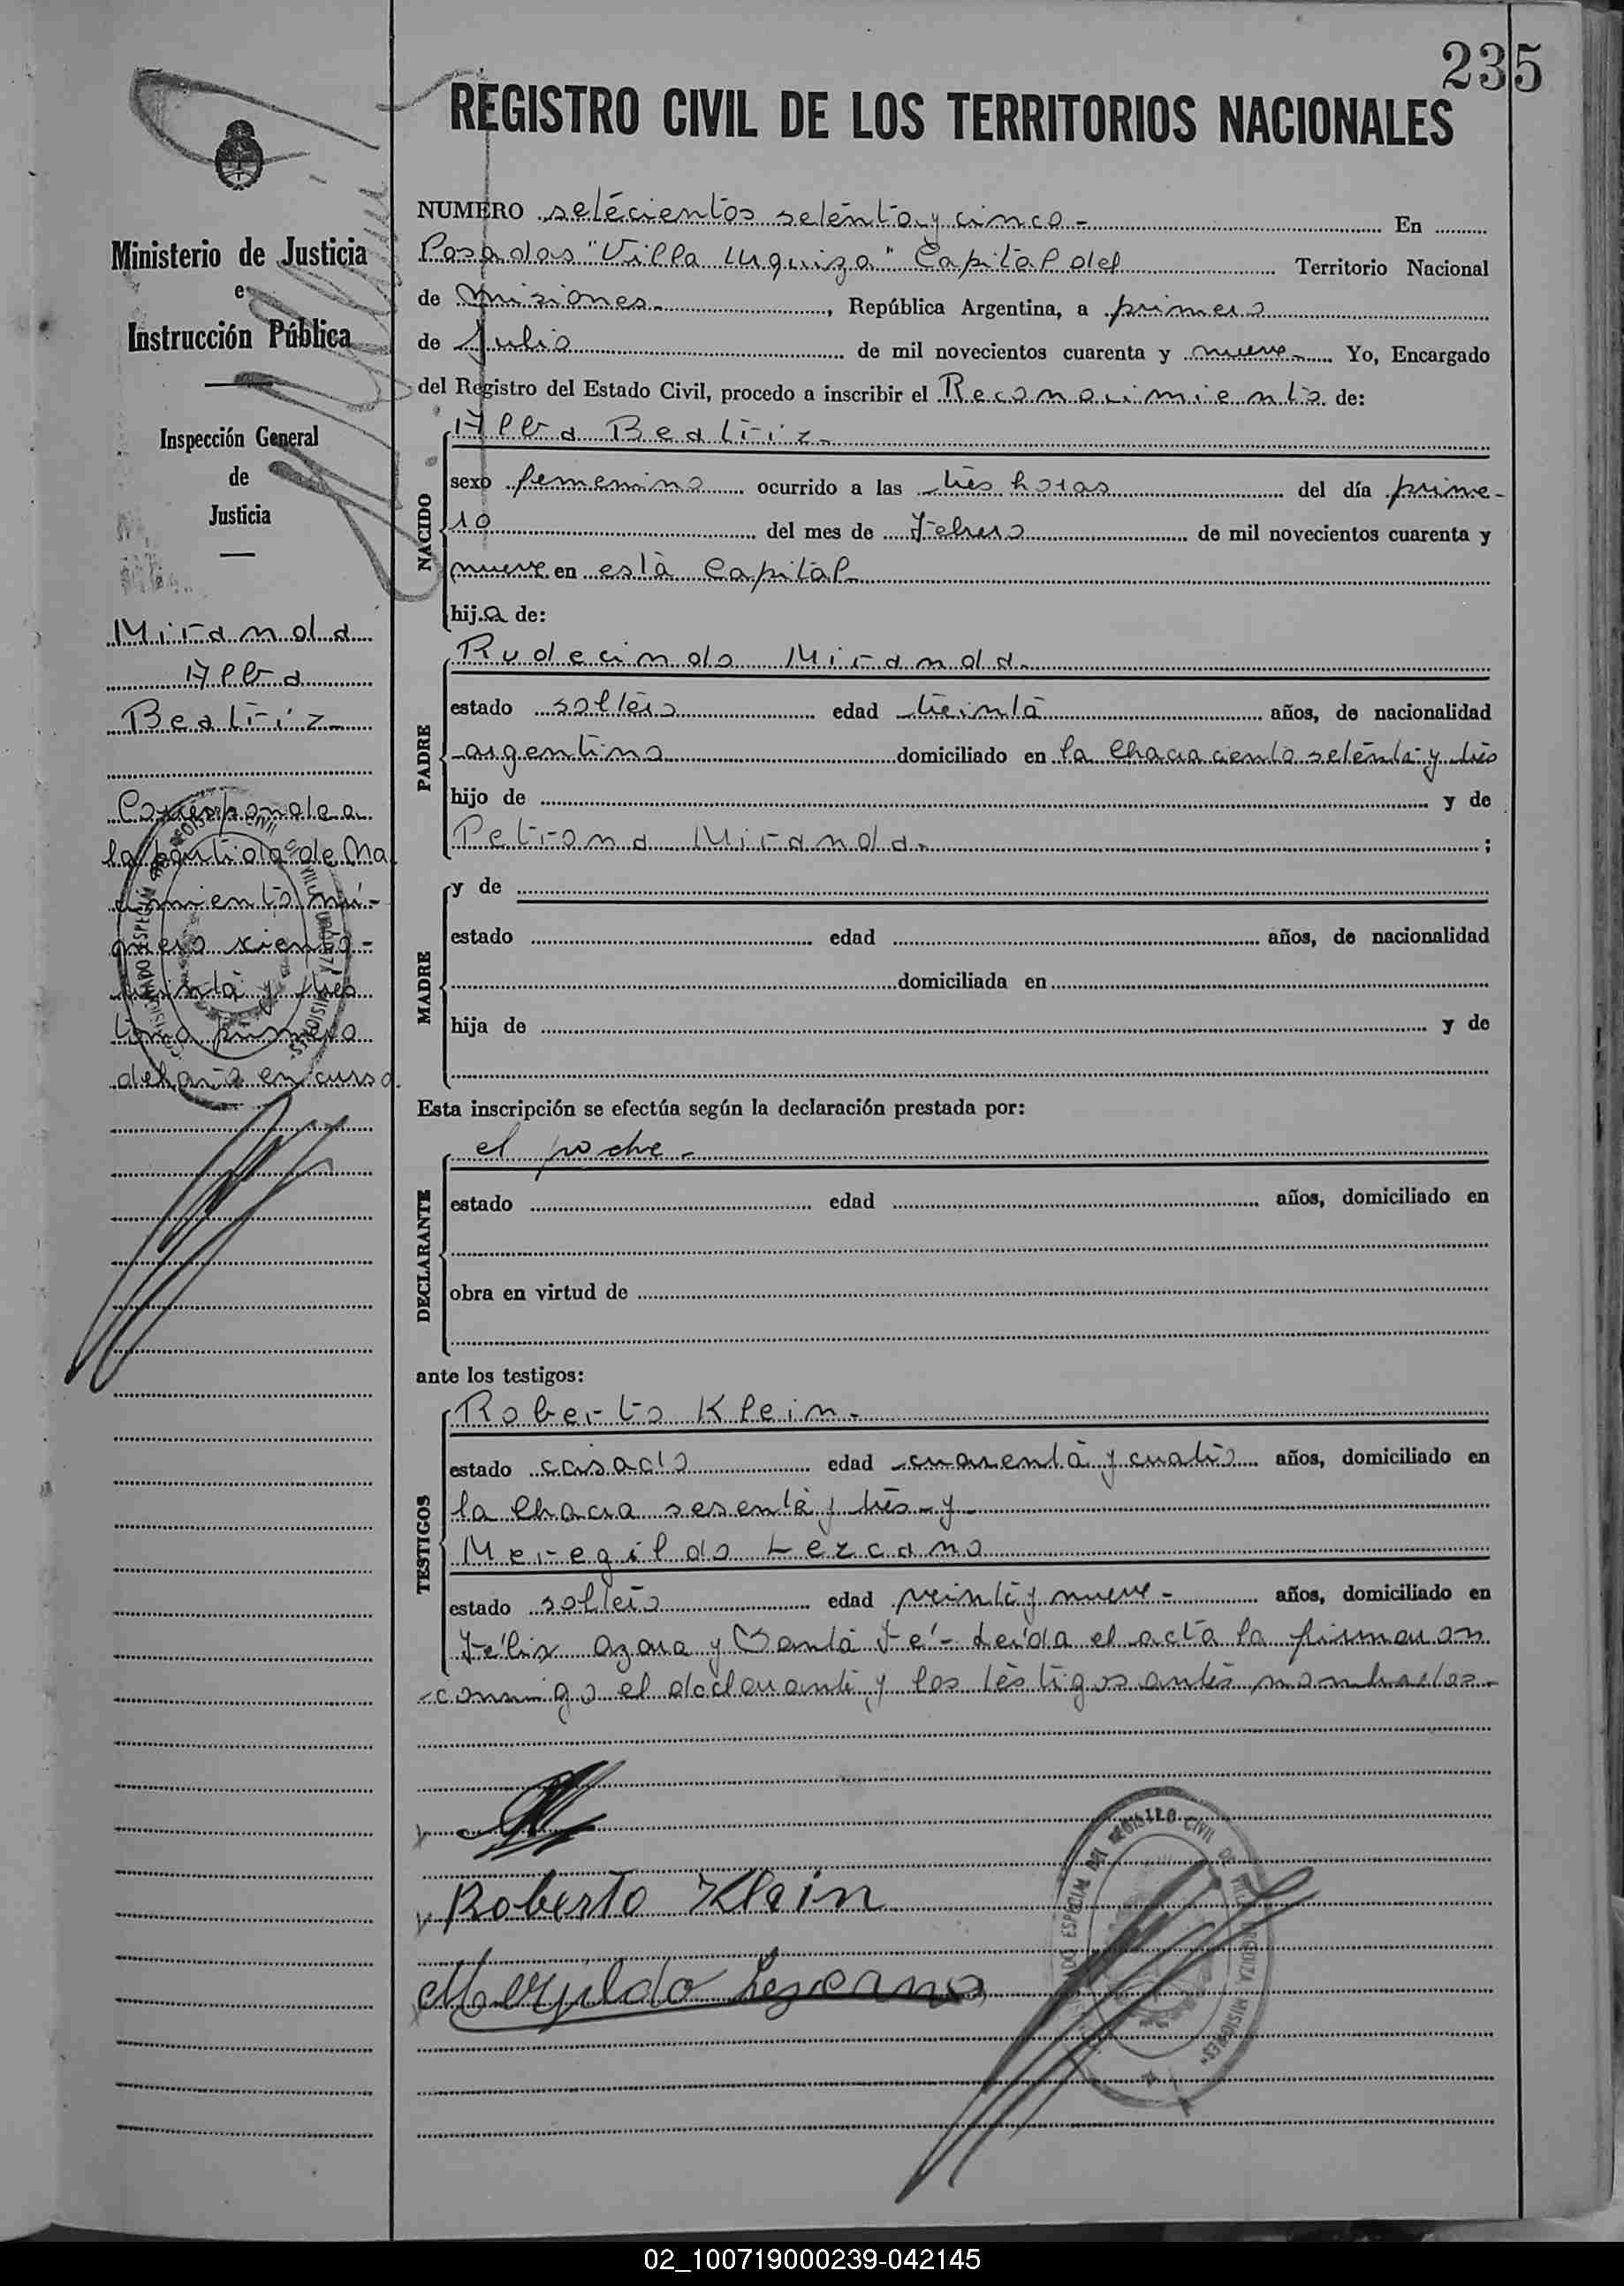 235
REGISTRO CIVIL DE LOS TERRITORIOS NACIONALES
Ministerio de Justicia
e
Instrucción Pública
Inspección General
de
Justicia
Miranda
Alba
Beatriz
Corresponde a
la partida de Na
cimiento nú-
mero ciento
y tres
tomo primero
del año en curso
NUMERO setecientos setenta y cinco- En
Posadas "Villa Urquiza" Capital del Territorio Nacional
de Misiones, República Argentina, a primero
de Julio de mil novecientos cuarenta y nueve Yo, Encargado
del Registro del Estado Civil, procedo a inscribir el Reconocimiento de:
Alba Beatriz
NACIDO
sexo femenino ocurrido a las tres horas del día prime-
ro del mes de Febrero de mil novecientos cuarenta y
nueve en esta Capital
hija de:
Rudecindo Miranda
PADRE
estado soltero edad treinta años, de nacionalidad
argentino domiciliado en la chacra ciento setenta y tres
hijo de y de
Petrona Miranda ;
MADRE
y de
estado edad años, de nacionalidad
domiciliada en
hija de y de
Esta inscripción se efectúa según la declaración prestada por:
el padre-
DECLARANTE
estado edad años, domiciliado en
obra en virtud de
ante los testigos:
Roberto Klein-
TESTIGOS
estado casado edad cuarenta y cuatro años, domiciliado en
la chacra sesenta y tres- y
Meregildo Lezcano
estado soltero edad veinte y nueve- años, domiciliado en
Félix Azara y Santa Fé- Leída el acta la firmaron
conmigo el declarante y los testigos antes nombrados-
Roberto Klein
Meregildo Lezcano
REGISTRO CIVIL DE VILLA URQUIZA MISIONES
02_100719000239-042145